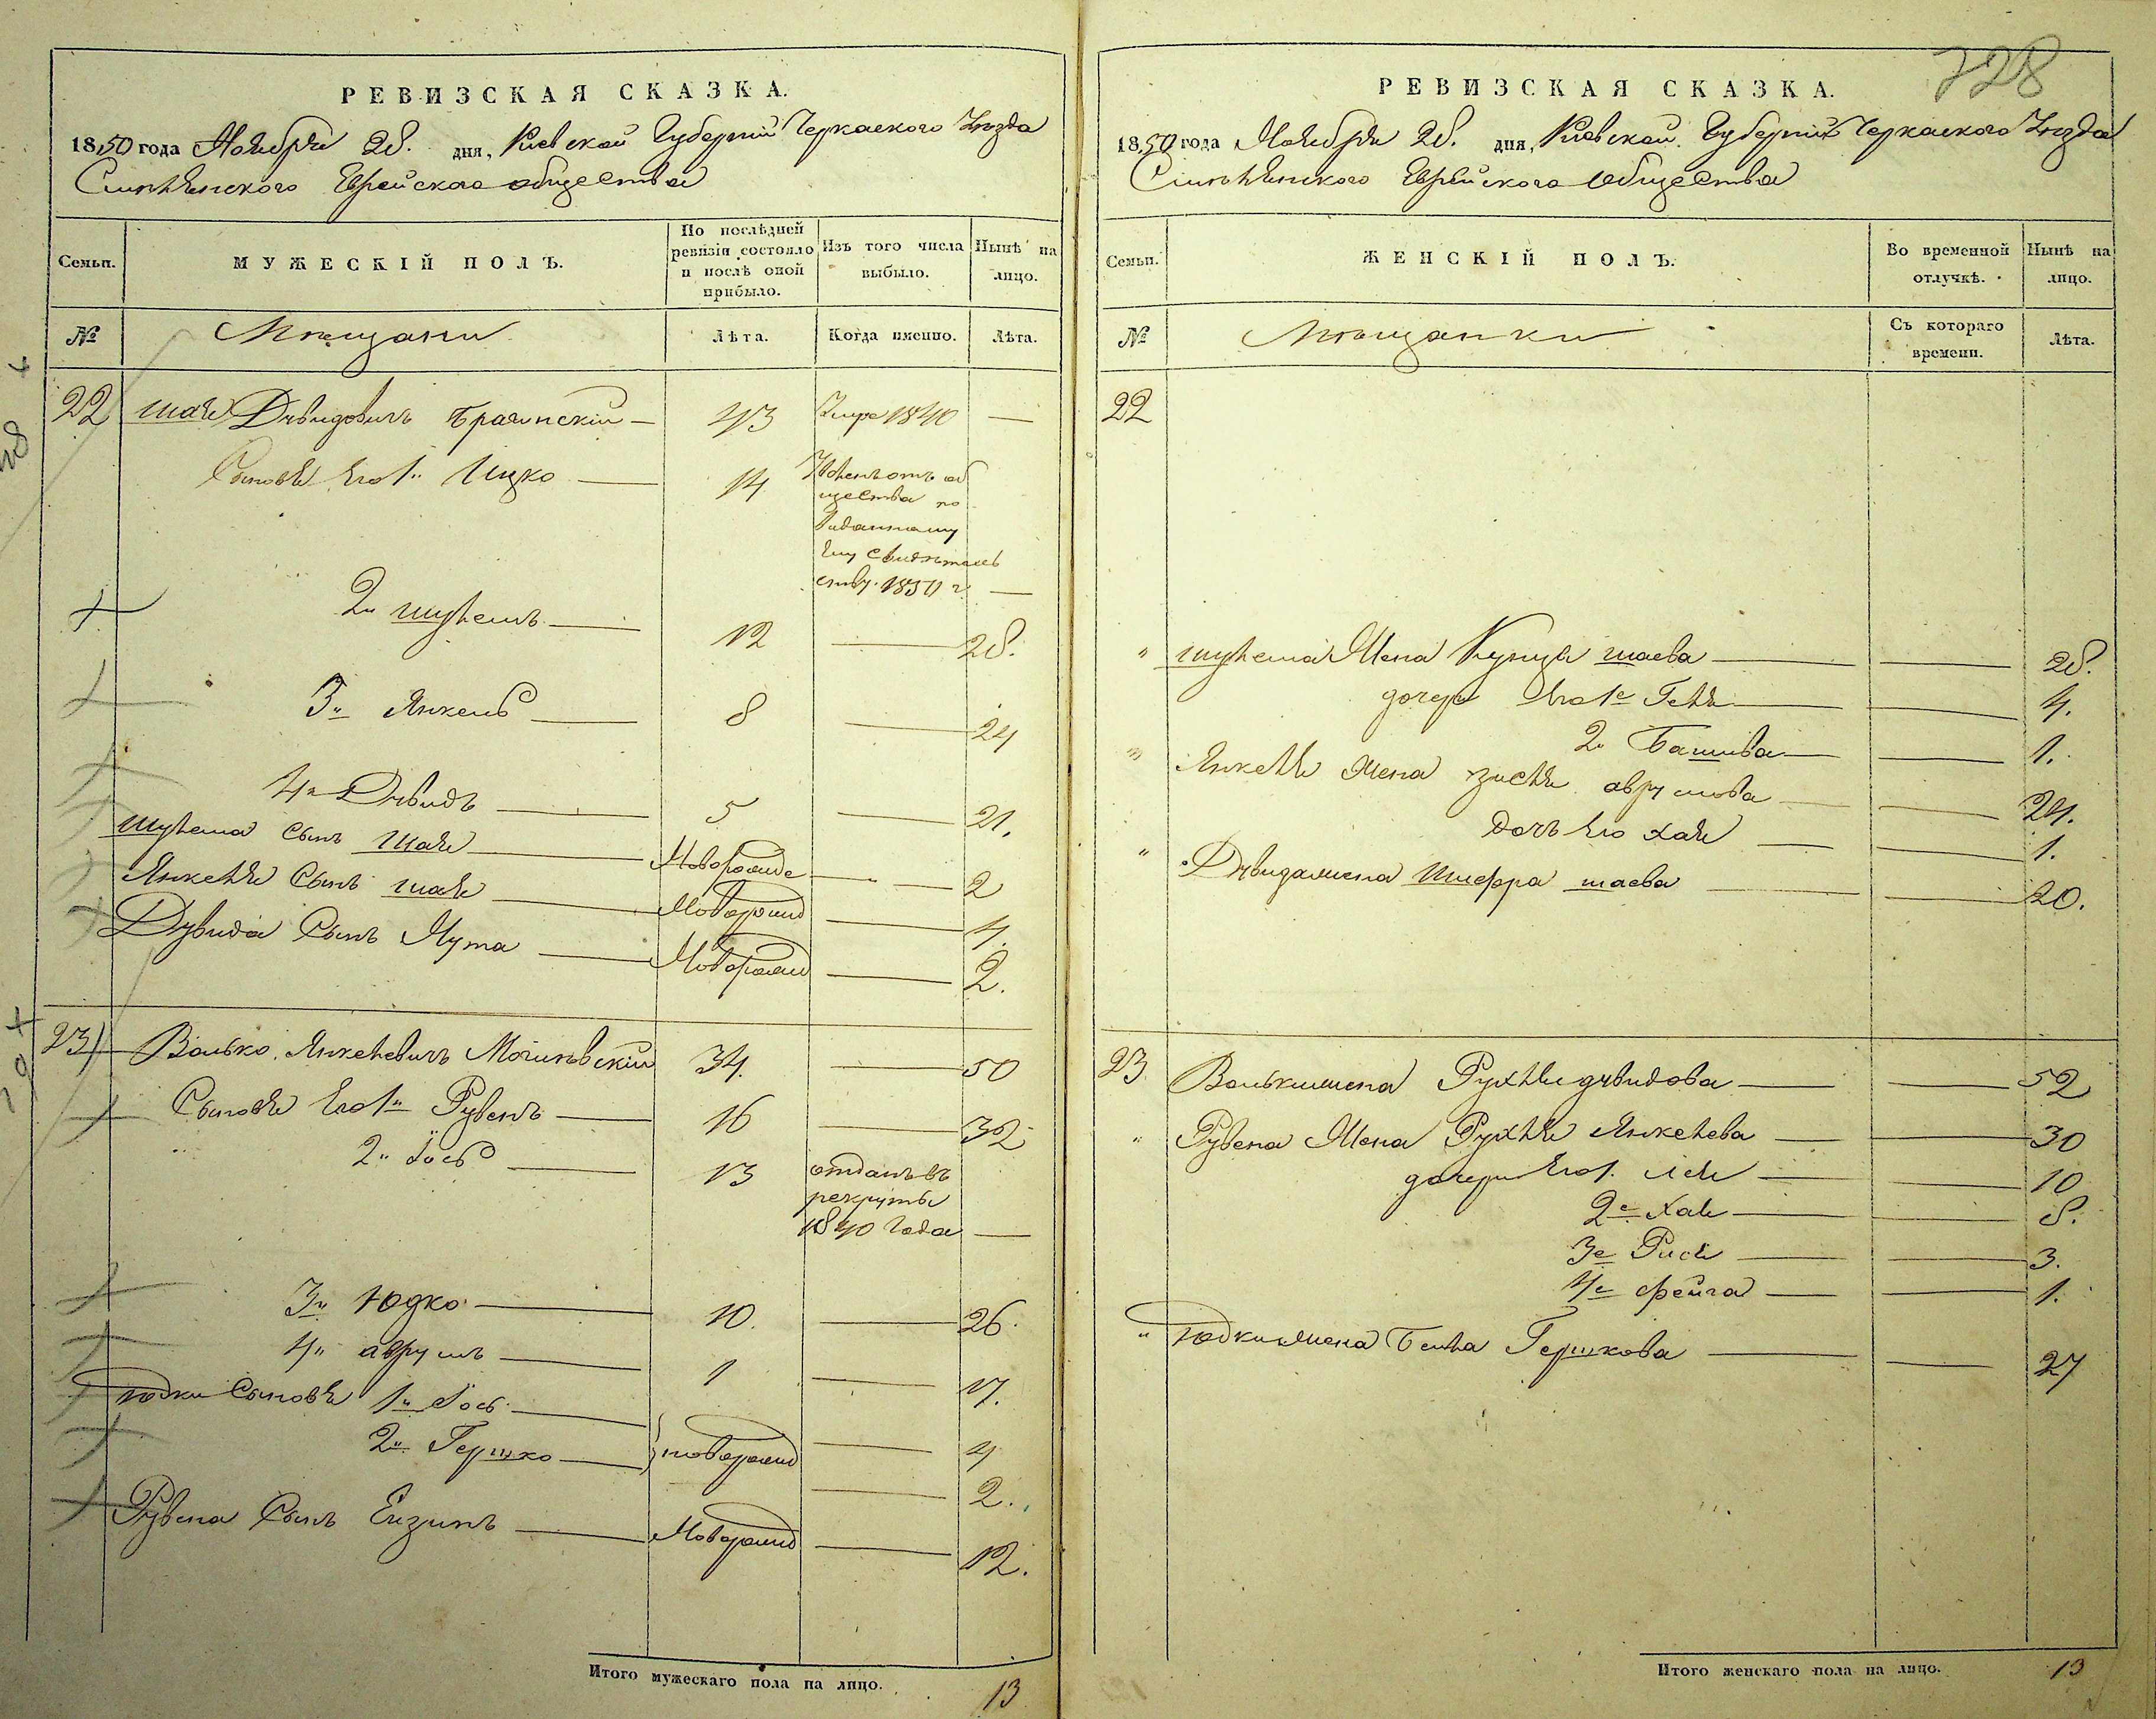 РЕВИЗСКАЯ СКАЗКА.
1850 года Ноября 28. дня, Киевской Губернии Черкаского Уѣзда
Смѣлянского Еврейского общества
Семьи.
МУЖЕСКІЙ ПОЛЪ.
По послѣдней ревизіи состояло и послѣ оной прибыло.
Изъ того числа выбыло.
Нынѣ на лицо.
№
Мѣщани
Лѣта.
Когда именно.
Лѣта.
22 Шая Дувидовичъ — 43 Умре 1840 —
Сыновья Его 1й Ицко — 14
Уволенъ отъ об
щества по
выданному
Ему свидѣтель
ству 1850 г. —
2й Шулемъ — 12 — 28.
3й Янкель — 8 — 24
4й Дувидъ — 5 — 21.
Шулема сынъ Шая — Новорожде — 2
Янкеля Сынъ Шая — Новорожд — 4.
Дувида Сынъ Мута — Новорожд — 2.
23 Волько Янкелевичъ Могилевскій 34. — 50
Сыновья Его 1й Рувенъ — 16 — 32
2й Іось — 13 отданъ въ
рекруты
1840 года —
3й Юдко — 10. — 26.
4й Аврумъ — 1 — 17.
Юдки Сыновья 1й Іось — новорожд — 4
2й Гершко — 2.
Рувена Сынъ Ейзикъ — Новорожд — 12.
Итого мужескаго пола на лицо. 13
728
РЕВИЗСКАЯ СКАЗКА.
1850 года Ноября 28. дня, Киевской Губерніи Черкаского Уѣзда
Смѣлянского Еврейского Общества
Семьи.
ЖЕНСКІЙ ПОЛЪ.
Во временной отлучкѣ.
Нынѣ на лицо.
№
Мѣщанки
Съ котораго времени.
Лѣта.
22
" Шулема Жена Шаева — — 28.
дочери Его 1е Геня — — 4.
2я Башива — — 1.
" Янкеля Жена Зисля Аврумова — — 24.
дочь Его Хая — — 1.
" Дувида жена Шифра Шаева — — 20.
23 Вольки жена Рухля Дувидова — — 52
" Рувена Жена Рухля Янкелева — — 30
дочери Его 1. Лея — — 10
2е Хая — — 8.
3е Рися — — 3.
4е Фейга — — 1.
" Юдки жена Бейла Гершкова — — 27
Итого женскаго пола на лицо. 13